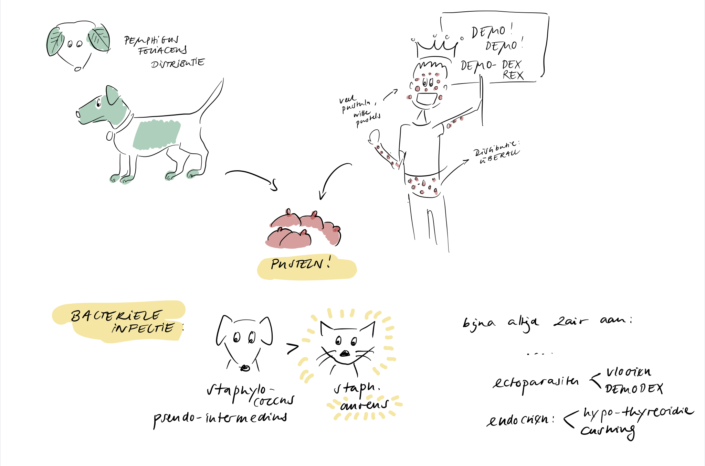 PEMPHIGUS
FOLIACEUS
DISTRIBUTIE
DEMO!
DEMO!
DEMO-DEX
REX
veel
pusteln,
Distributie:
ÜBERALL
PUSTELN!
BACTERIELE
INFECTIE:
>
staphylo-
coccus
pseudo-intermedius
staph.
aureus
bijna altijd 2air aan:
....
ectoparasiten < vlooien
DEMODEX
endocrien: < hypo-thyreoidie
cushing